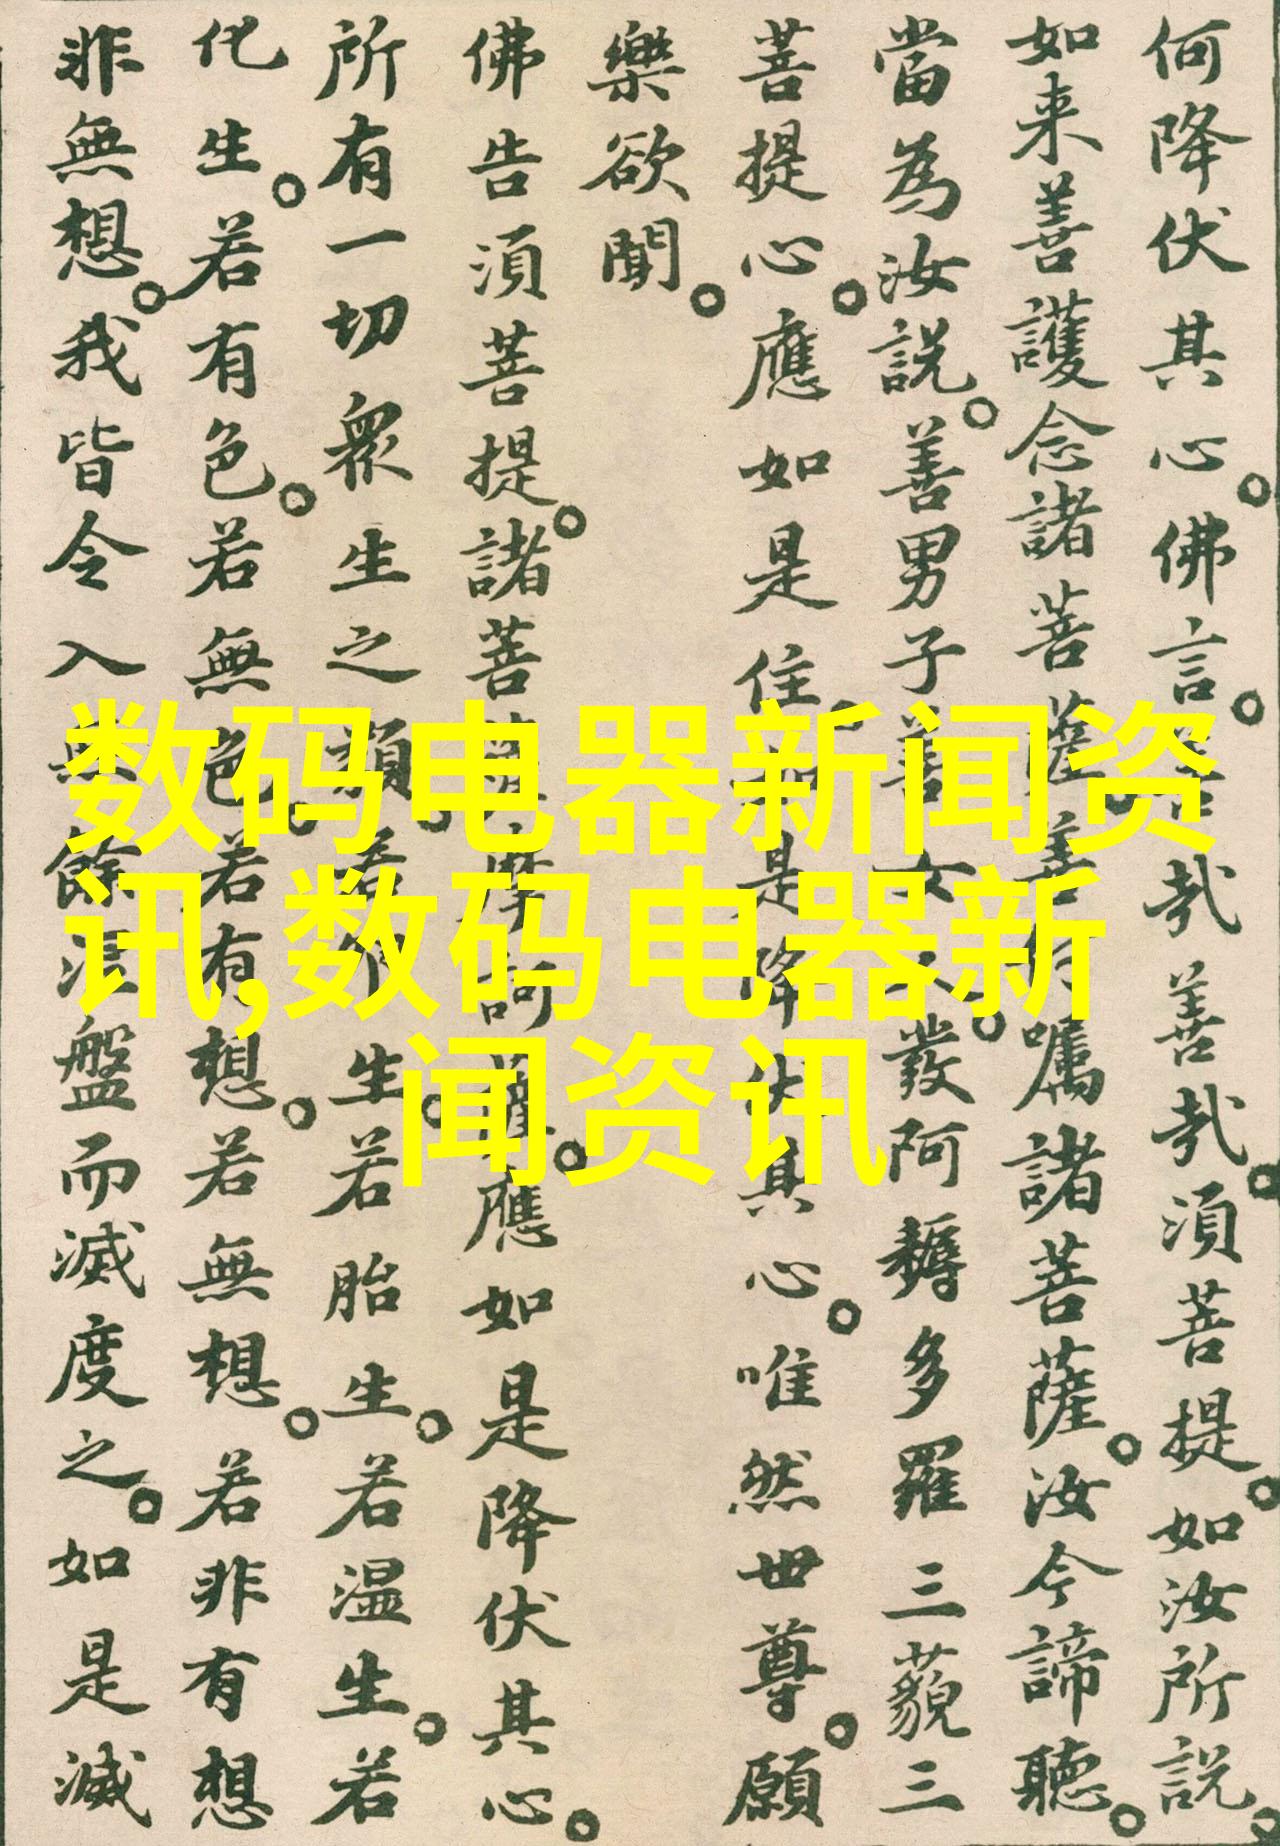 何降伏其心佛言善哉善哉湏菩提如汝所説
如来善護念諸菩薩善付嘱諸菩薩汝今諦聽
當為汝説善男子善女人發阿耨多羅三藐三
菩提心應如是住如是降伏其心唯然世尊願
樂欲聞
佛告湏菩提諸菩薩摩訶薩應如是降伏其心
所有一切衆生之類若卵生若胎生若温生若
化生若有色若無色若有想若無想若非有想
非無想我皆令入無餘涅盤而滅度之如是滅
数码电器新闻资
讯,数码电器新
闻资讯